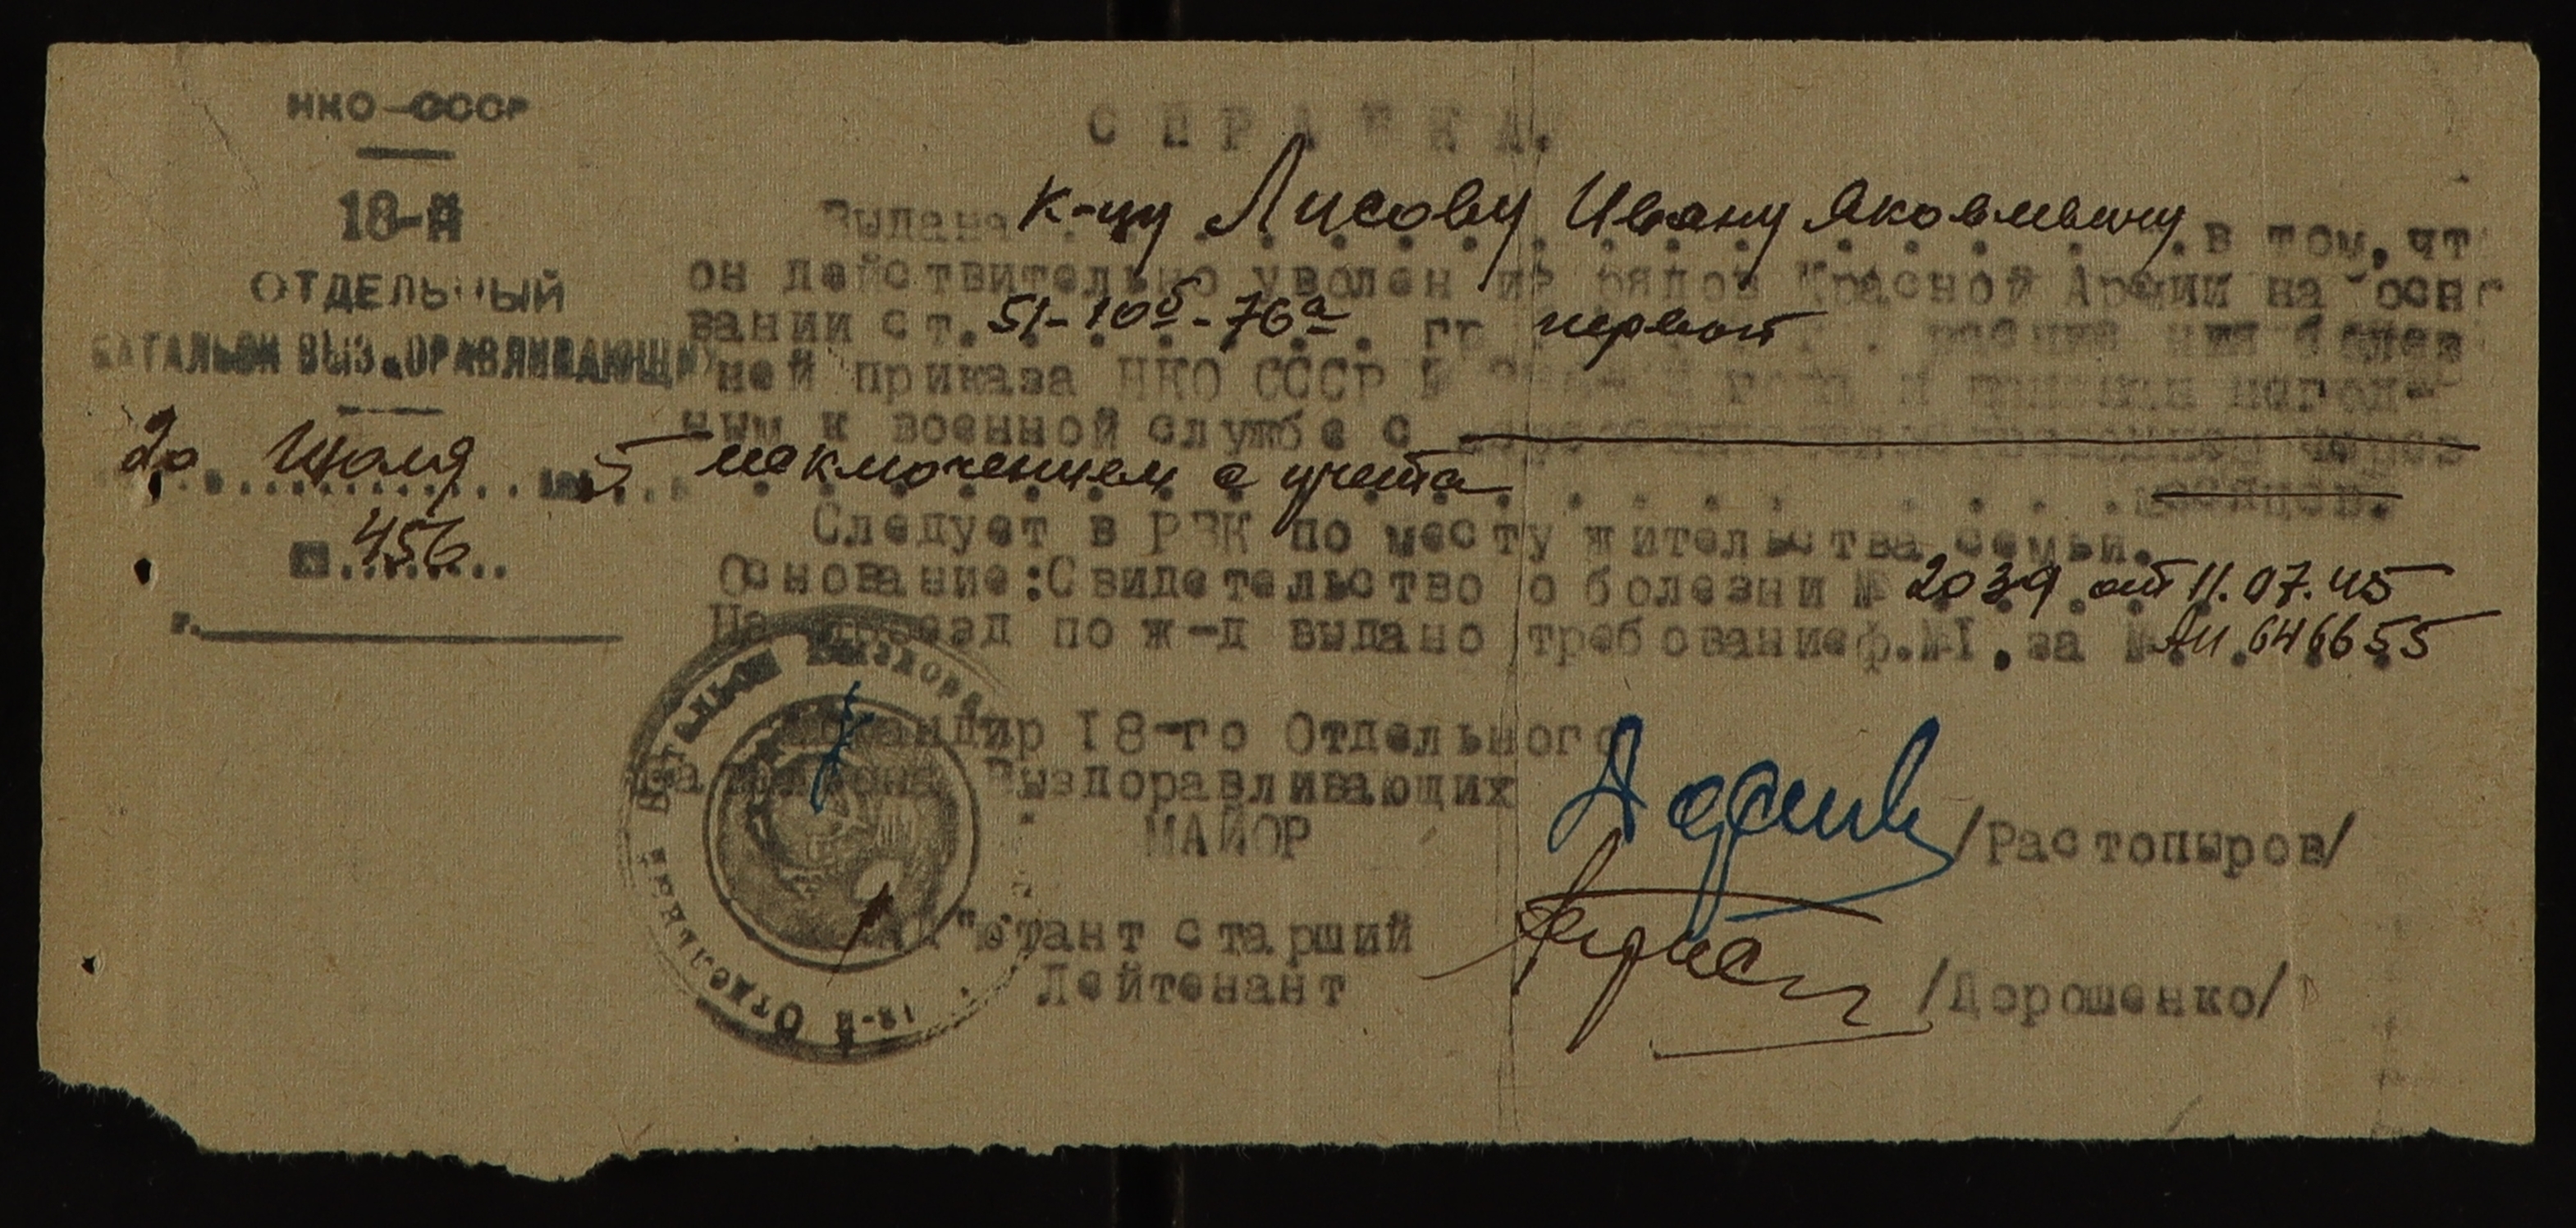 НКО СССР
18-й
ОТДЕЛЬНЫЙ
БАТАЛЬОН ВЫЗДОРАВЛИВАЮЩИХ
20 Июля 194 5
№ 456
г.
СПРАВКА.
Выдана к-цу Лисову Ивану Яковлевичу в том, чт
он действительно уволен из рядов Красной Армии на осно
вании ст. 51-10б-76а гр первой болез
ней приказа НКО СССР № негод-
ным к военной службе с через
исключением с учета месяцев.
Следует в РВК по месту жительства семьи.
Основание: Свидетельство о болезни № 2039 от 11.07.45
На проезд по ж-д выдано требование ф.№I. за № АИ 646655
Командир I8-го Отдельного
Батальона Выздоравливающих
МАЙОР /Растопыров/
Ад"ютант старший
Лейтенант /Дорошенко/
18-й Отдельный Батальон Выздорав